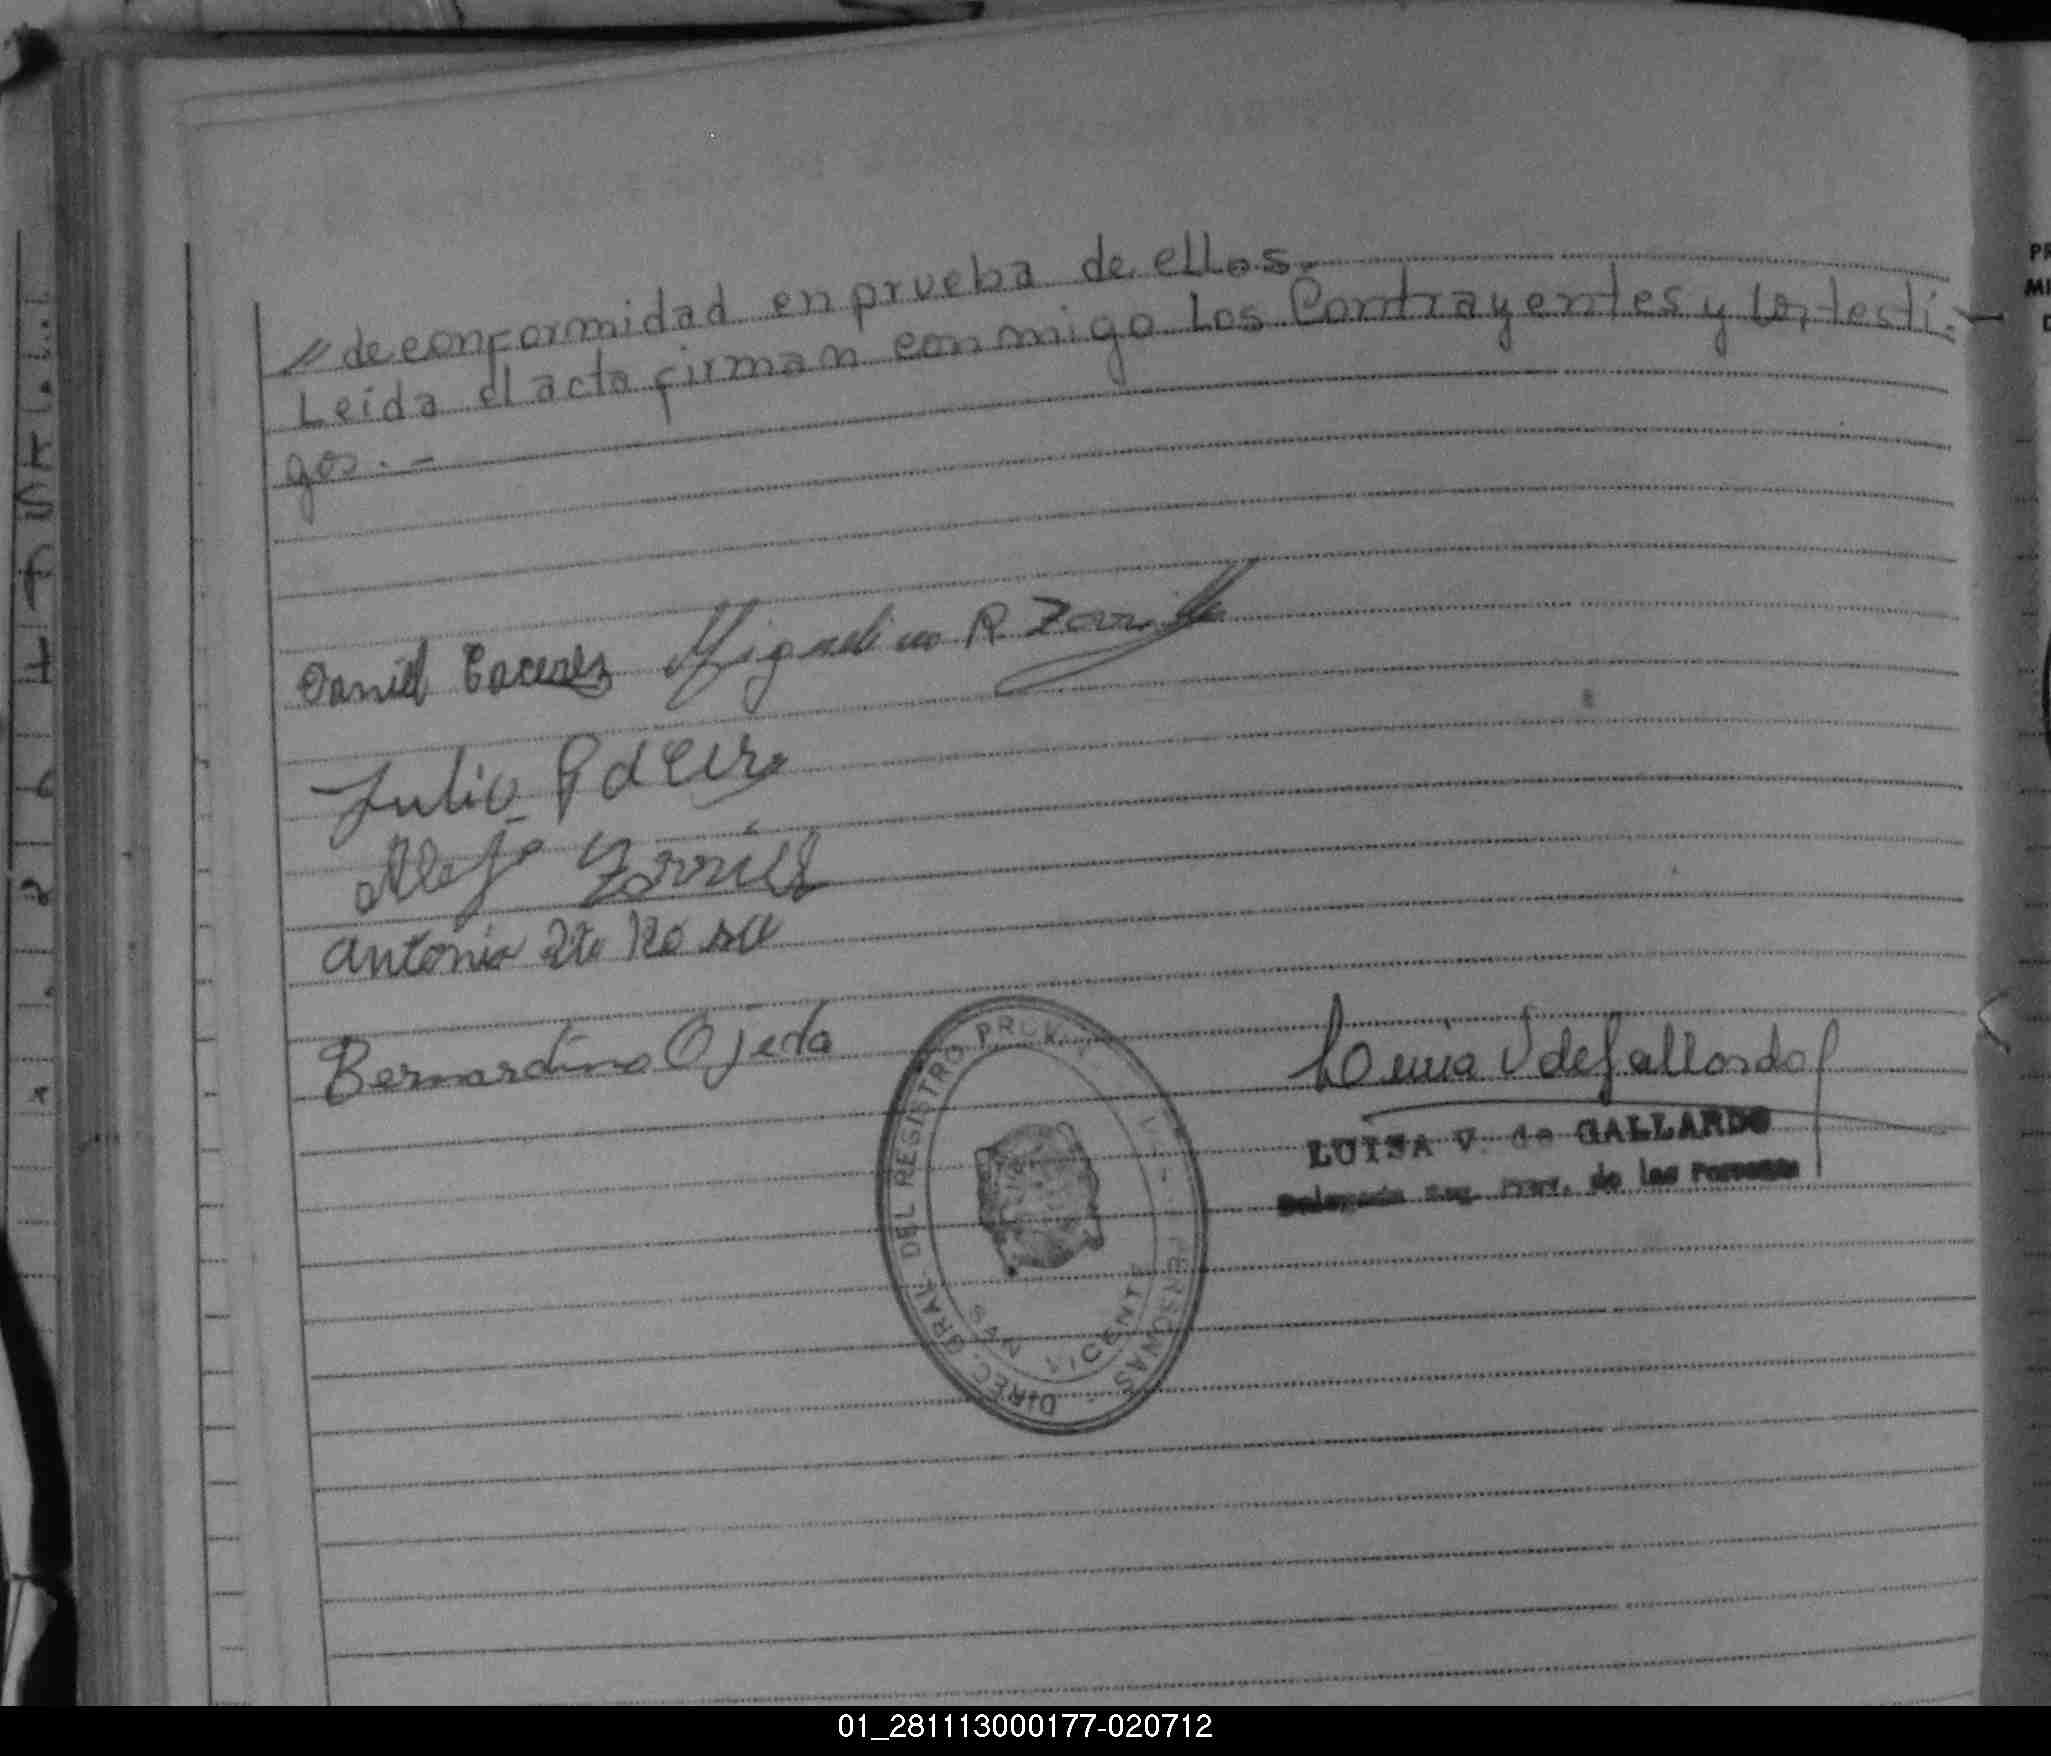 // de conformidad en prueba de ellos.
Leida el acta firman conmigo los Contrayentes y los testi-
gos.-
Daniel Caceres Miguelina R. Zorrilla
Julio
Alejo Zorrilla
Antonia Sta Rosa
Bernardino Ojeda
Luisa V de Gallardo
LUISA V. de GALLARDO
Delegada Reg. Prov. de las Personas
DIREC. GRAL. DEL REGISTRO PROV. PERSONAS
SAN VICENTE
01_281113000177-020712